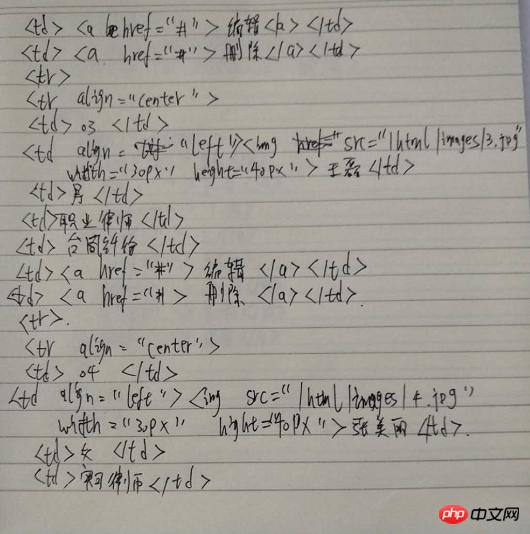 <td> <a href="#"> 编辑 <a> </td>
<td> <a href="#"> 删除</a></td>
<tr>
<tr align="center">
<td> 03 </td>
<td align="left"><img src="/html/images/3.jpg"
width="30px" height="40px"> 王磊 </td>
<td> 男 </td>
<td>职业律师</td>
<td> 合同纠纷 </td>
<td><a href="#"> 编辑 </a></td>
<td> <a href="#> 删除 </a></td>.
<tr>.
<tr align="center">
<td> 04 </td>
<td align="left"> <img src="/html/images/4.jpg"
width="30px" hight="40px"> 张美丽 </td>.
<td> 女 </td>
<td> 实习律师</td>
php 中文网